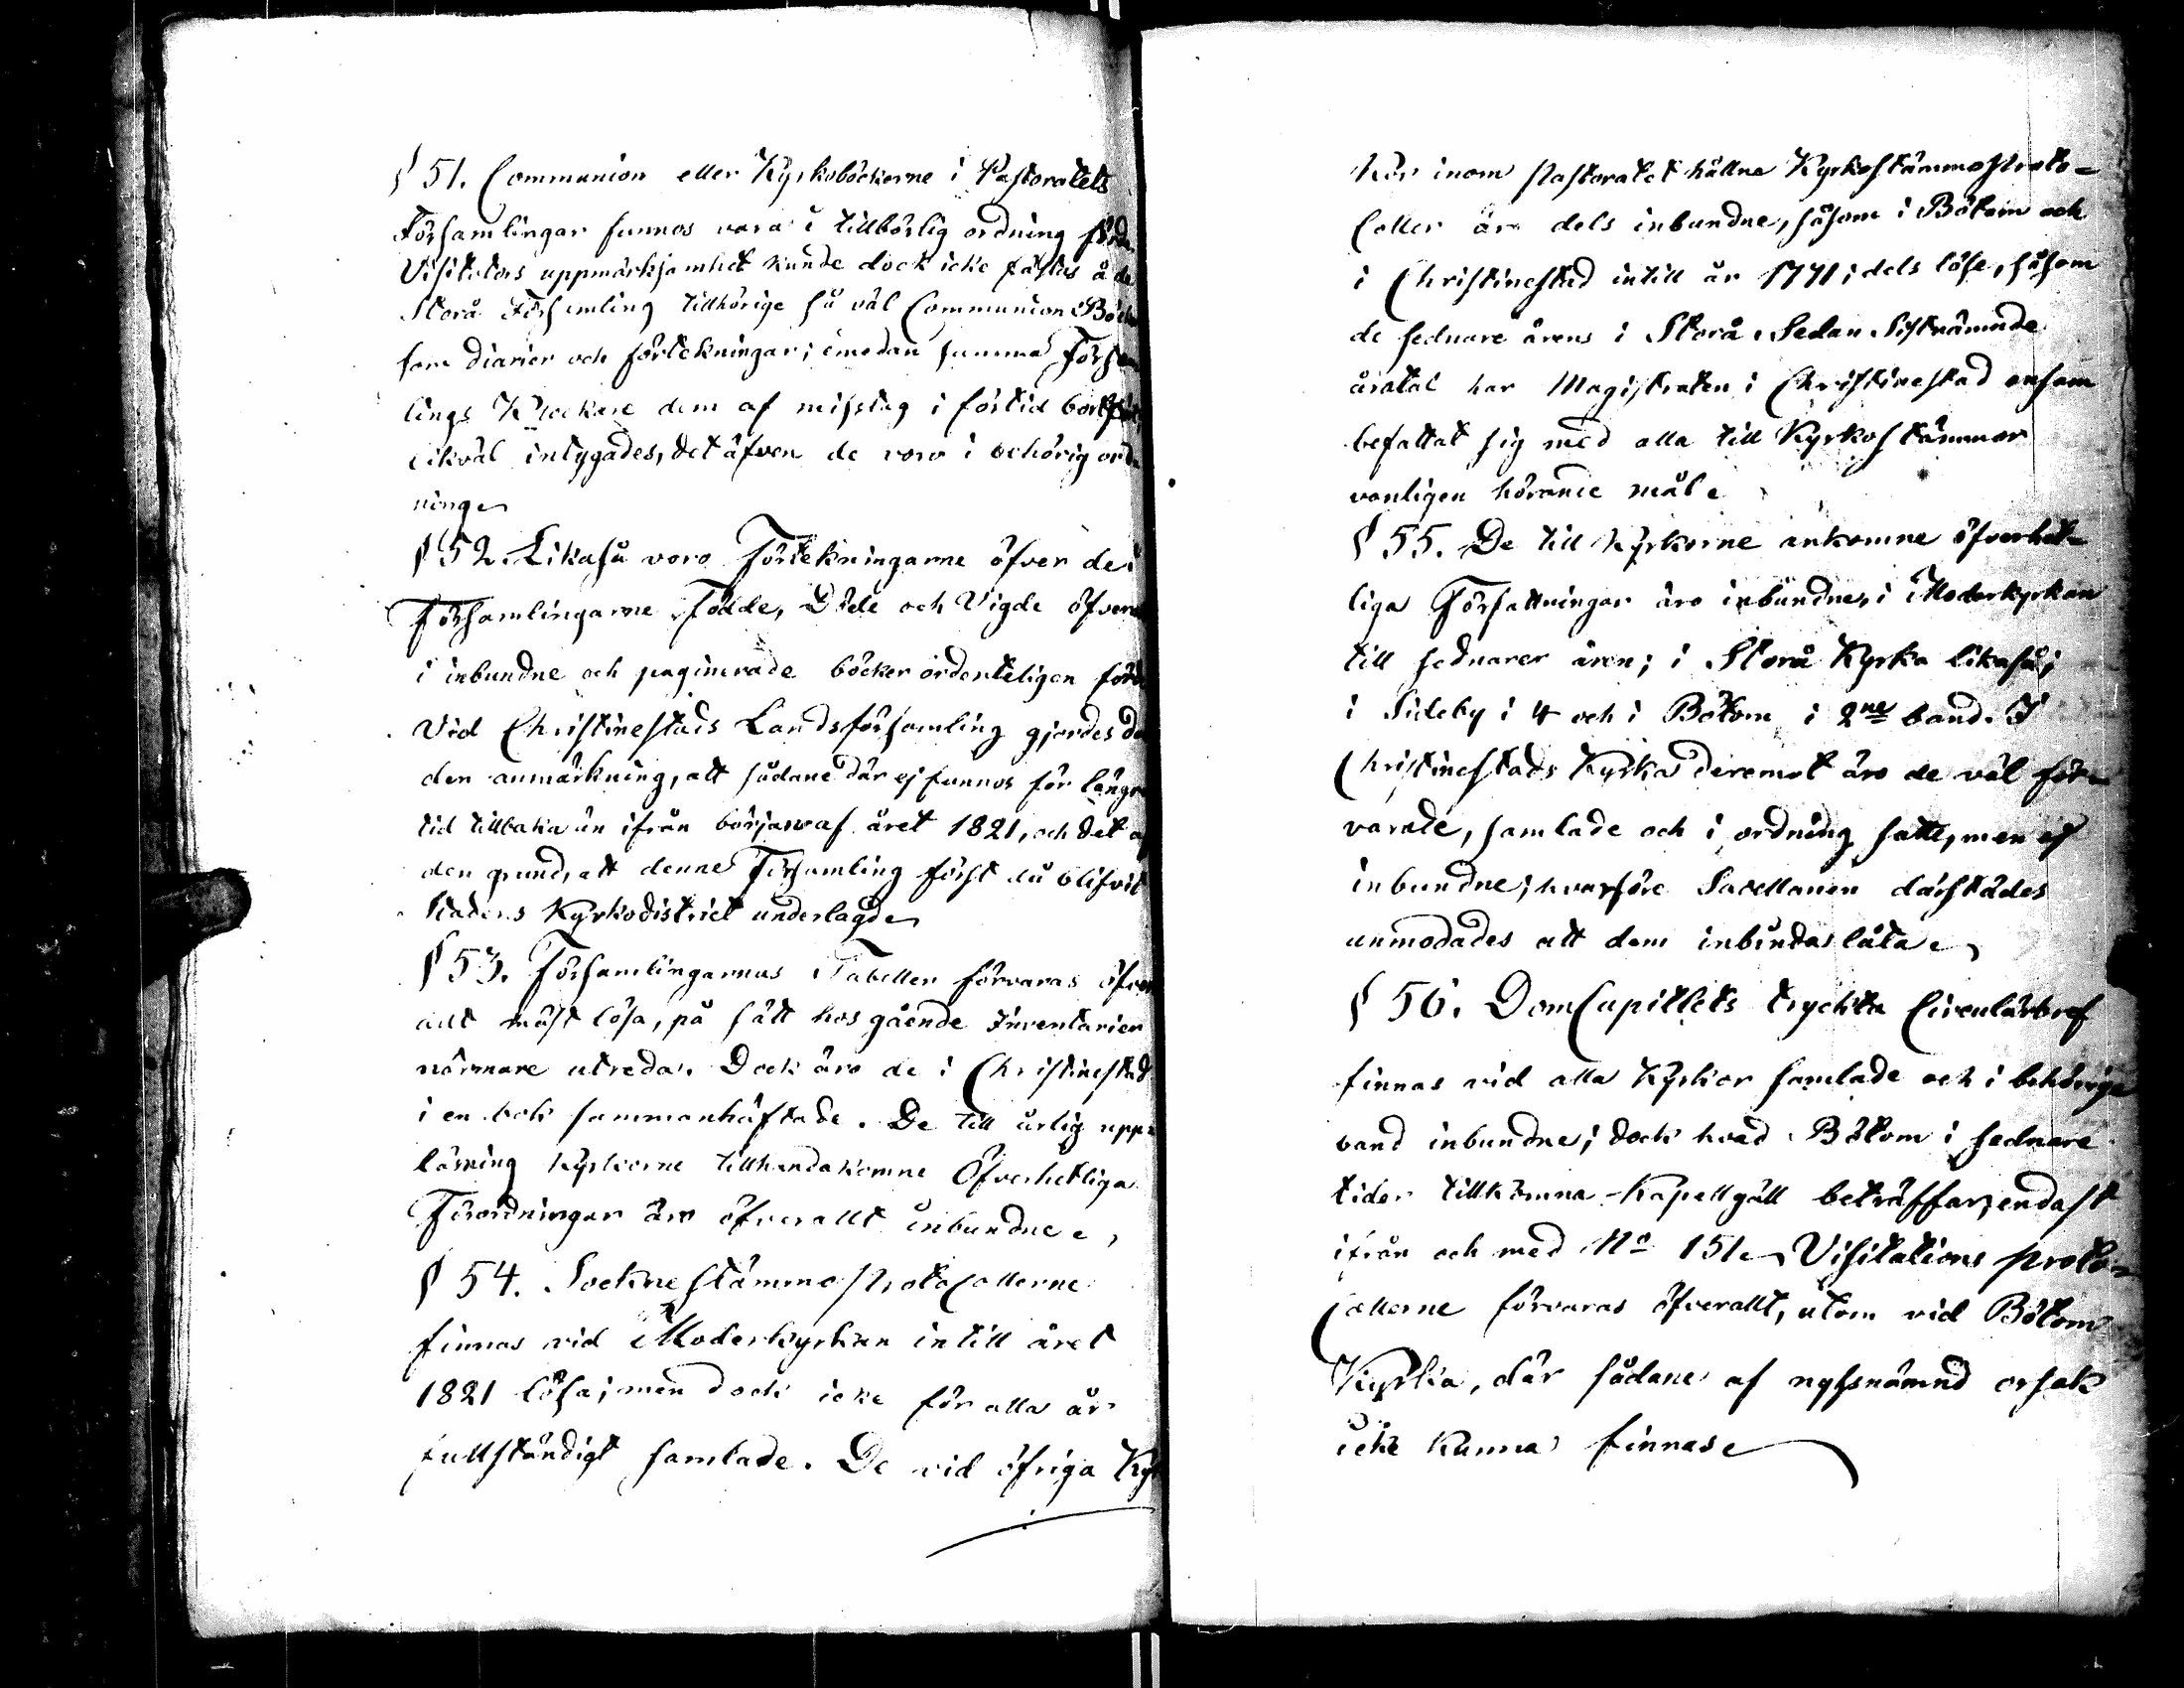 § 51. Communion eller Kyrkoböckerne i Pastoratets
Församlingar funnos vara i tillbörlig ordning förda
Visitators uppmärksamhet kunde dock icke fästas å de
Storå Församling tillhörige så väl Communion Böcker
som diarier och förtekningar; emedan samma Försam
lings Klockare dem af misstag i förtid bortfört
likväl intygades, det äfven de voro i behörig ord
ning.
§ 52. Likaså voro Förtekningarne öfver de i
Församlingarne Födde, Döde och Vigde öfverallt
i inbundne och paginerade böcker ordenteligen förde
Vid Christinestads Landsförsamling gjordes då
den anmärkning, att sådane där ej funnos för längre
tid tillbaka än ifrån början af året 1821, och det af
den grund, att denne Församling först då blifvit
Stadens Kyrkodistrict underlagd.
§ 53. Församlingarnas Tabeller förvaras öfver
allt mäst lösa, på sätt hos gående Inventarier
närmare utreda. Dock äro de i Christinestad
i en bok sammanhäftade. De till årlig upp=
läsning Kyrkorne tillhandakomne Öfverhetliga
Förordningar äro öfverallt inbundne.
§ 54. Sockne stämmo protocollerne
finnas vid Moderkyrkan intill året
1821 lösa; men dock icke för alla år
fullständigt samlade. De vid öfriga Kyr
kor inom Pastoratet hållne Kyrkostämmo Proto=
coller äro dels inbundne, såsom i Bötom och
i Christinestad intill år 1771; dels löse, såsom
de sednare årens i Storå. Sedan Sistnämnde
åratal har Magistraten i Christinestad ensam
befattat sig med alla till Kyrkostämmor
vanligen hörande mål.
§ 55. De till Kyrkorne ankomne öfverhet=
liga Författningar äro inbundne, i Moderkyrkan
till sednarer åren; i Storå Kyrka likaså;
i Sideby i 4 och i Bötom i 2ne band. I
Christinestads Kyrka deremot äro de väl för=
varade, samlade och i ordning satte, men ej
inbundne; hvarföre Sacellanen därstädes
anmodades att dem inbinda låta.
§ 56. DomCapitlets tryckta Circulärbref
finnas vid alla Kyrkor samlade och i behörige
band inbundne; dock hvad Bötom i sednare
tider tillkomna Kapellgäll beträffar, endast
ifrån och med No 151. Visitations proto=
collerne förvaras öfverallt, utom vid Bötom
Kyrka, där sådane af nyssnämnd orsak
icke kunna finnas.